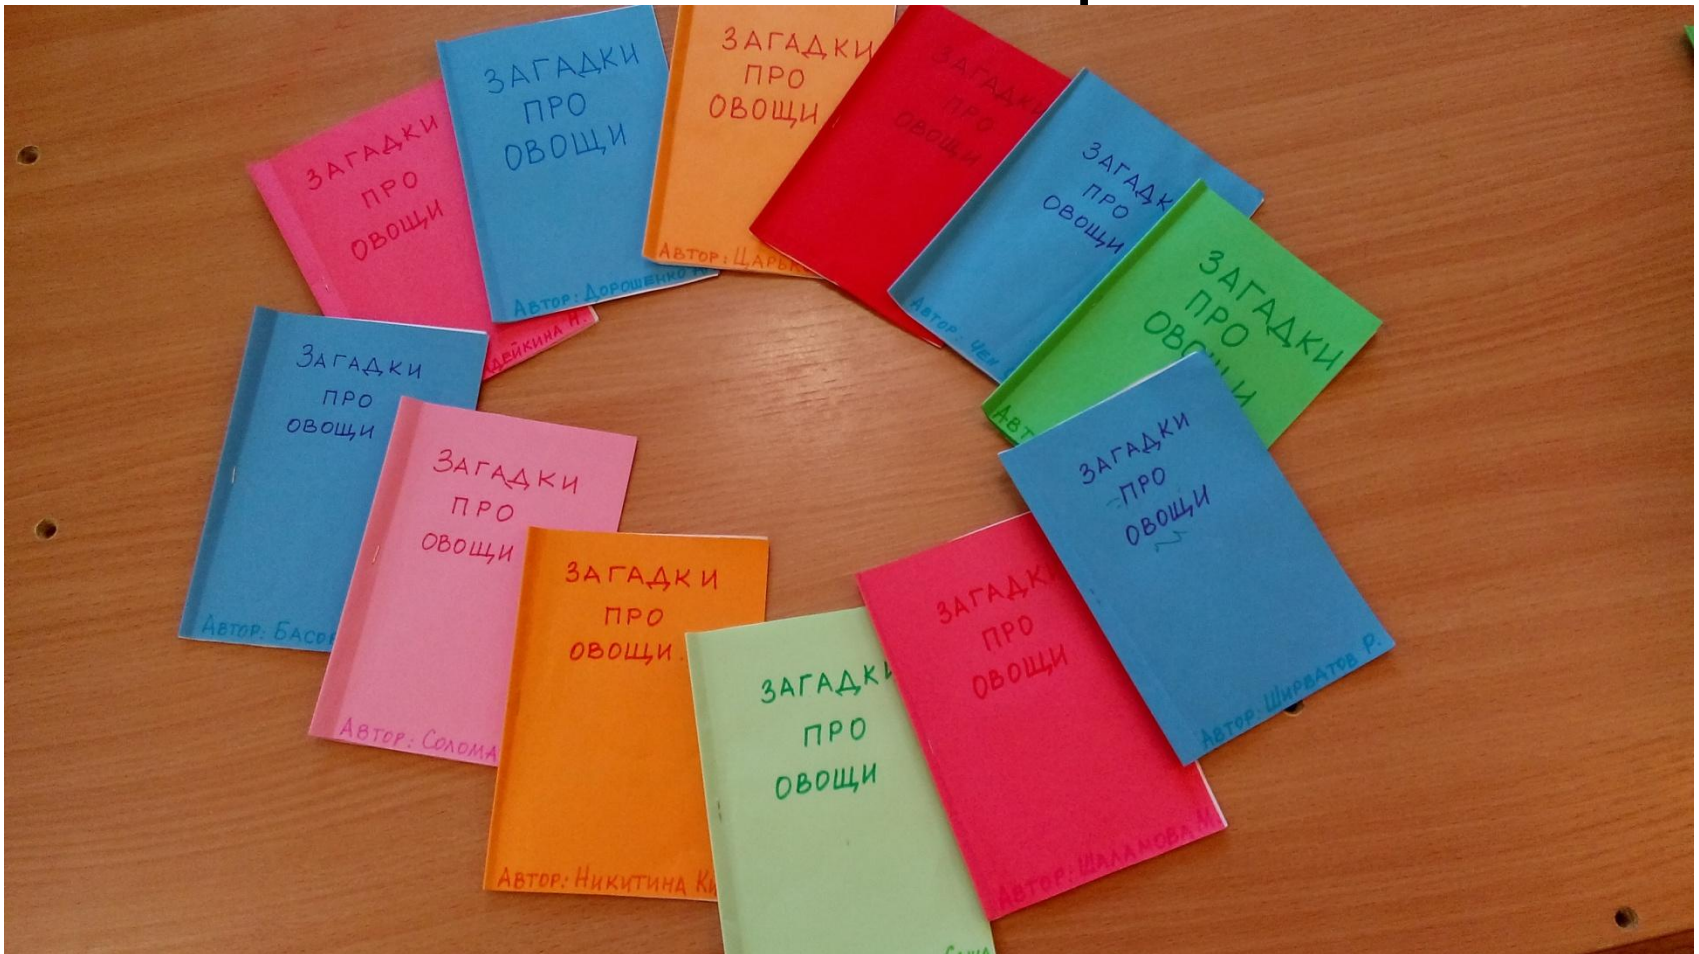 ЗАГАДКИ
ПРО
ОВОЩИ
ДЕЙКИНА Н.
ЗАГАДКИ
ПРО
ОВОЩИ
АВТОР: ДОРОШЕНКО
ЗАГАДКИ
ПРО
ОВОЩИ
АВТОР: ЦАРЬК
ЗАГАДКИ
ПРО
ОВОЩИ
ЗАГАДК
ПРО
ОВОЩИ
АВТОР: ЧЕК
ЗАГАДКИ
ПРО
ОВОЩИ
АВТ
ЗАГАДКИ
ПРО
ОВОЩИ
АВТОР: ШИРВАТОВ Р.
ЗАГАДКИ
ПРО
ОВОЩИ
АВТОР: БАСОВ
ЗАГАДКИ
ПРО
ОВОЩИ
АВТОР: СОЛОМА
ЗАГАДКИ
ПРО
ОВОЩИ
АВТОР: НИКИТИНА КИ
ЗАГАДКИ
ПРО
ОВОЩИ
ЗАГАДКИ
ПРО
ОВОЩИ
АВТОР: ШАЛАМОВА М.